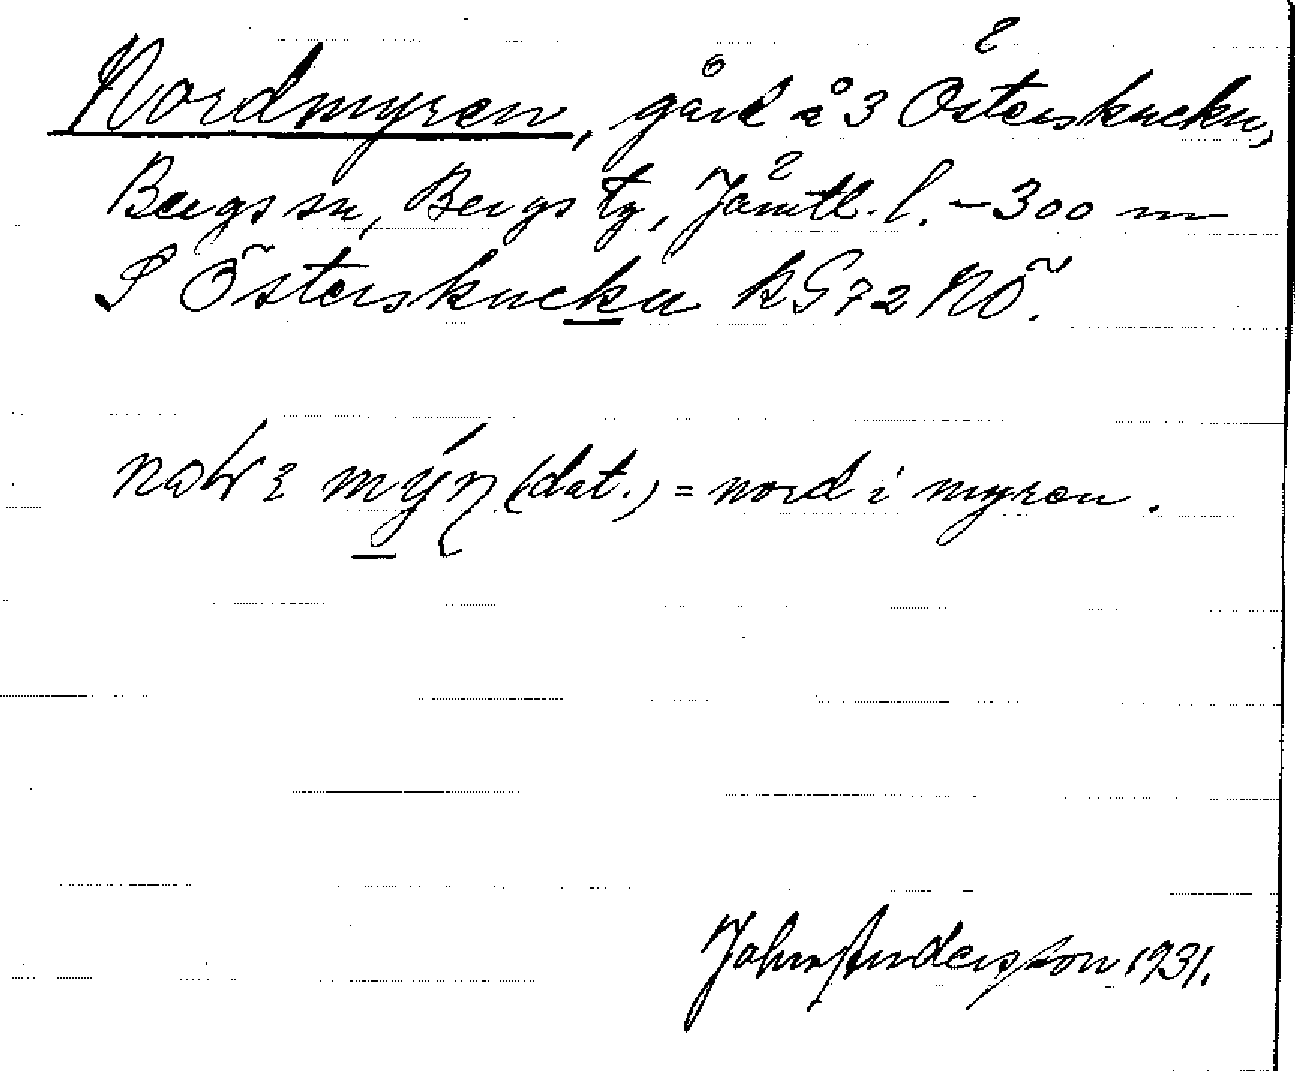 Nordmyren, gård å 3 Österskucku,
Bergs sn, Bergs tg, Jämtl. l. – 300 m
S Österskucku kG 72 NÖ.
mýn (dat.) = nord i myren.
John Andersson 1931.